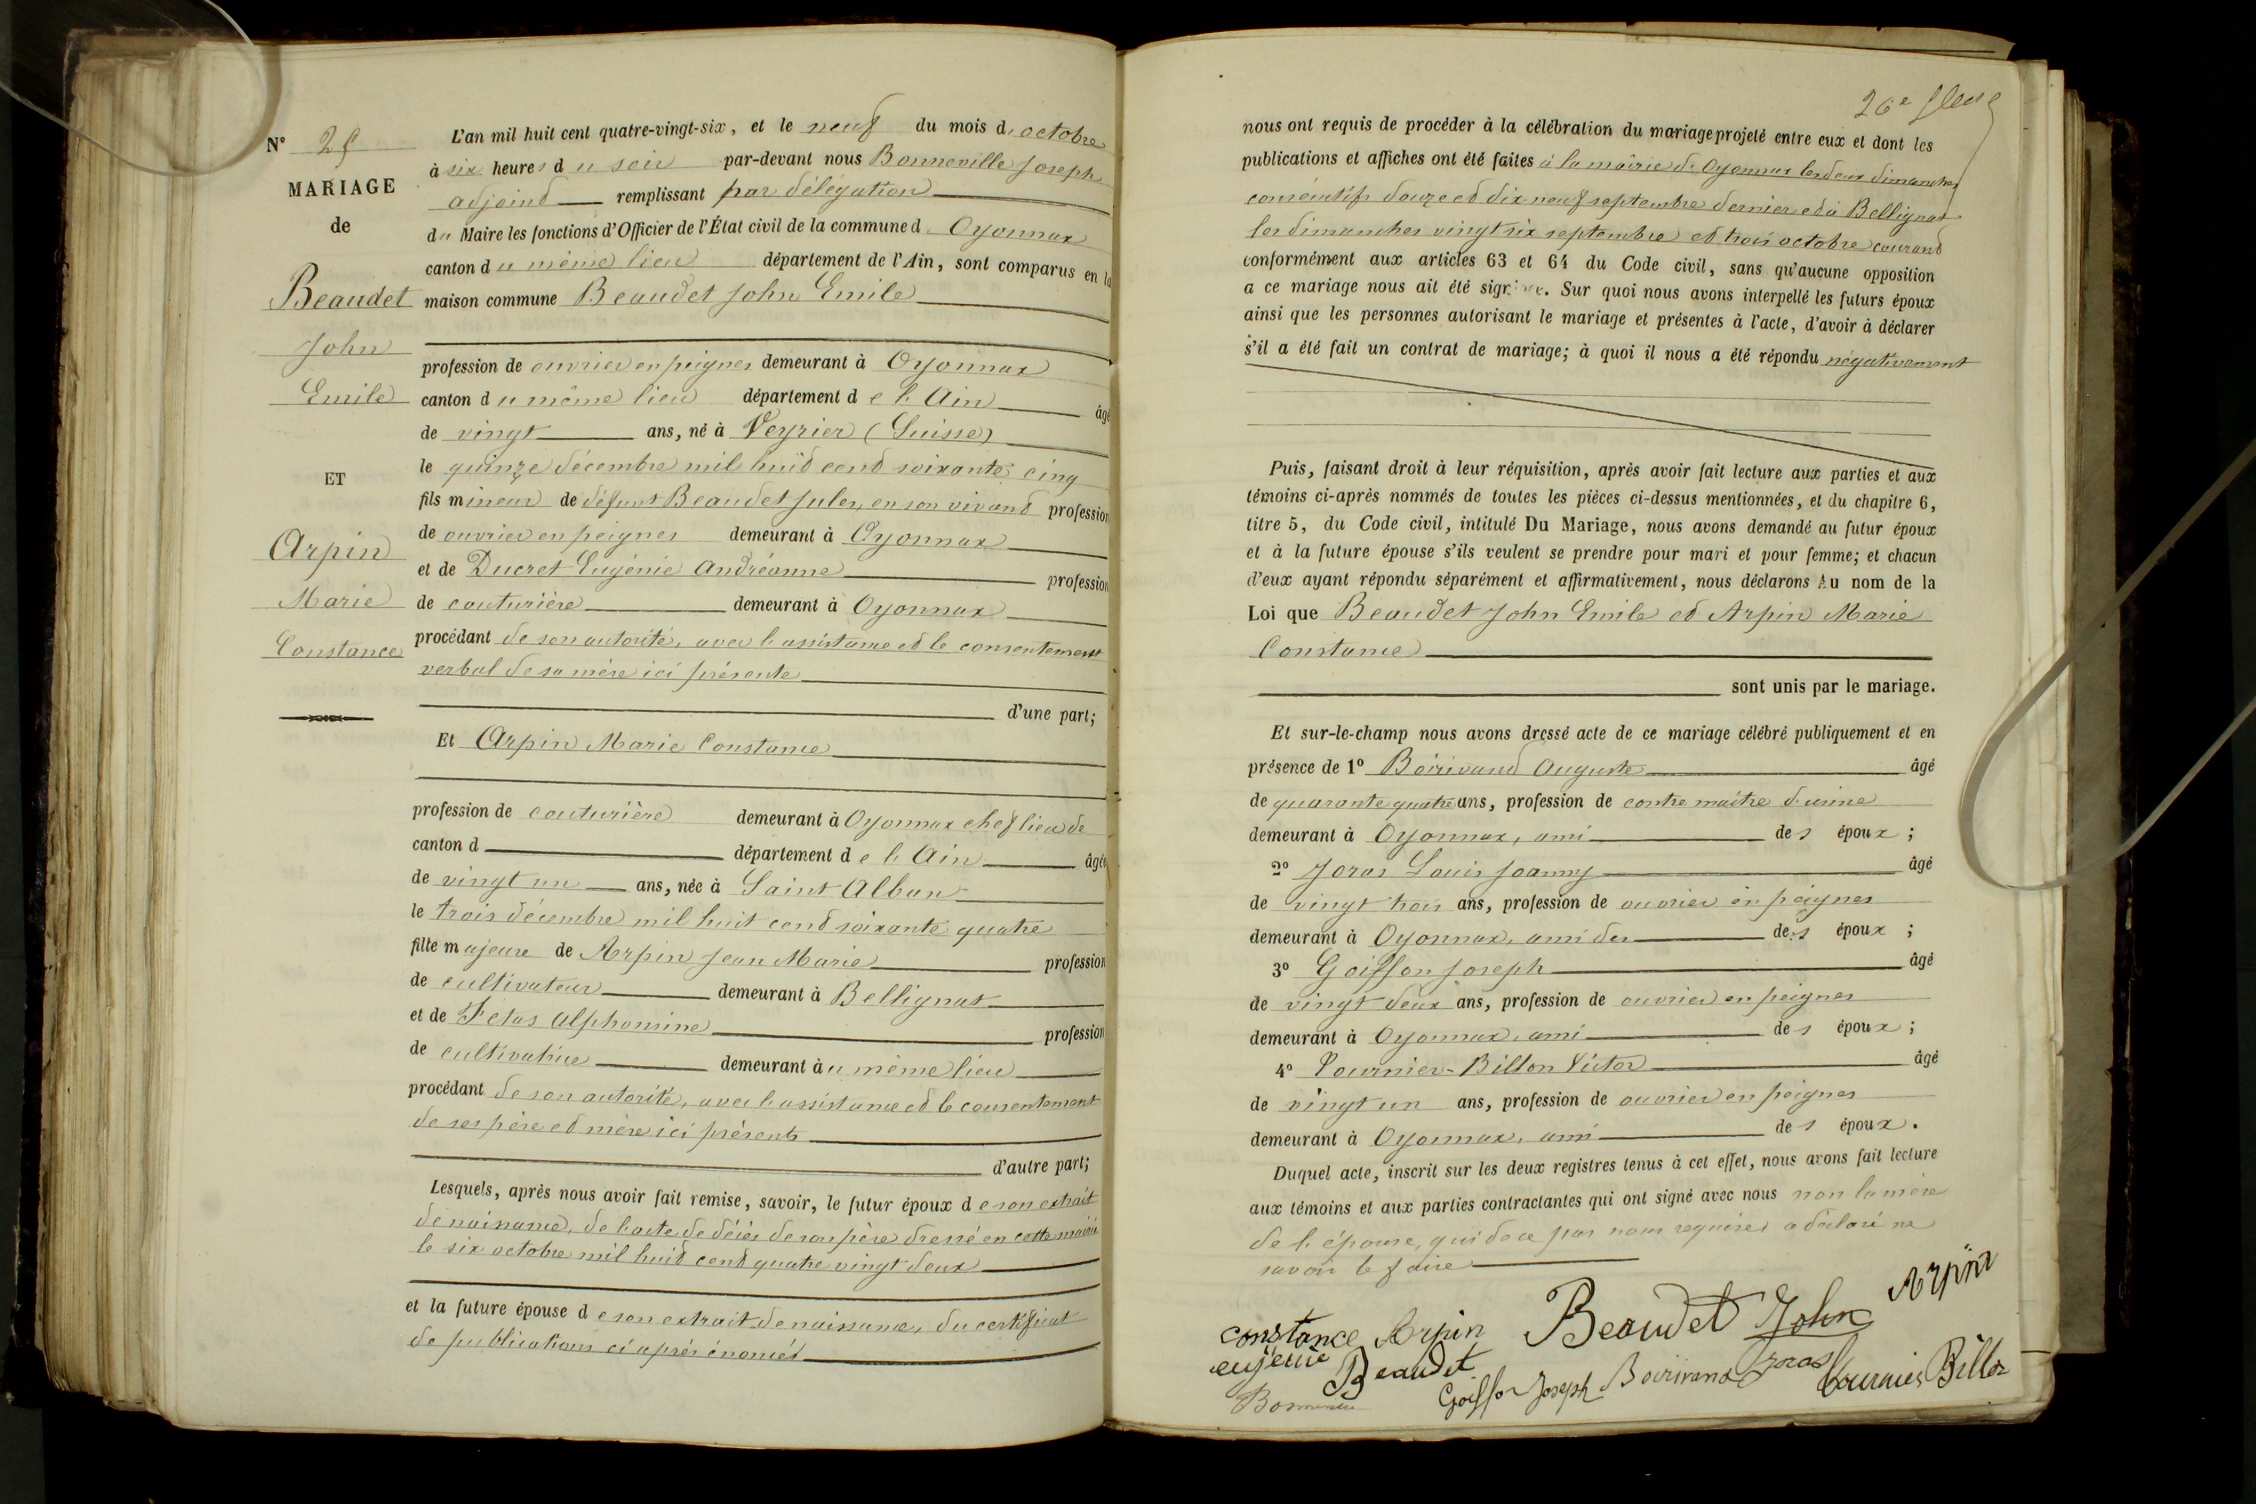 N° 25
MARIAGE
de
Beaudet
John
Emile
ET
Arpin
Marie
Constance
L'an mil huit cent quatre-vingt-six, et le neuf du mois d'octobre
à six heures du soir par-devant nous Bonneville Joseph
adjoint remplissant par délégation
du Maire les fonctions d'Officier de l'État civil de la commune d'Oyonnax
canton du même lieu département de l'Ain, sont comparus en la
maison commune Beaudet John Emile
profession de ouvrier en peignes demeurant à Oyonnax
canton du même lieu département de l'Ain âgé
de vingt ans, né à Veyrier (Suisse)
le quinze décembre mil huit cent soixante cinq
fils mineur de défunt Beaudet Jules, en son vivant profession
de ouvrier en peignes demeurant à Oyonnax
et de Ducret Eugénie Andréanne profession
de couturière demeurant à Oyonnax
procédant de son autorité, avec l'assistance et le consentement
verbal de sa mère ici présente
d'une part;
Et Arpin Marie Constance
profession de couturière demeurant à Oyonnax chef lieu de
canton d département de l'Ain âgée
de vingt un ans, née à Saint Alban
le trois décembre mil huit cent soixante quatre
fille majeure de Arpin Jean Marie profession
de cultivateur demeurant à Bellignat
et de Fetas Alphonsine profession
de cultivatrice demeurant au même lieu
procédant de son autorité, avec l'assistance et le consentement
de ses père et mère ici présents
d'autre part;
Lesquels, après nous avoir fait remise, savoir, le futur époux de son extrait
de naissance, de l'acte de décès de son père dressé en cette mairie
le six octobre mil huit cent quatre vingt deux
et la future épouse de son extrait de naissance, du certificat
de publications ci après énoncés
26e
nous ont requis de procéder à la célébration du mariage projeté entre eux et dont les
publications et affiches ont été faites à la mairie de Oyonnax les deux dimanches
consécutifs douze et dix neuf septembre dernier et à Bellignat
les dimanches vingt six septembre et trois octobre courant
conformément aux articles 63 et 64 du Code civil, sans qu'aucune opposition
a ce mariage nous ait été signifiée. Sur quoi nous avons interpellé les futurs époux
ainsi que les personnes autorisant le mariage et présentes à l'acte, d'avoir à déclarer
s'il a été fait un contrat de mariage; à quoi il nous a été répondu négativement
Puis, faisant droit à leur réquisition, après avoir fait lecture aux parties et aux
témoins ci-après nommés de toutes les pièces ci-dessus mentionnées, et du chapitre 6,
titre 5, du Code civil, intitulé Du Mariage, nous avons demandé au futur époux
et à la future épouse s'ils veulent se prendre pour mari et pour femme; et chacun
d'eux ayant répondu séparément et affirmativement, nous déclarons Au nom de la
Loi que Beaudet John Emile et Arpin Marie
Constance
sont unis par le mariage.
Et sur-le-champ nous avons dressé acte de ce mariage célébré publiquement et en
présence de 1° Boirivand Auguste âgé
de quarante quatre ans, profession de contre maître d'usine
demeurant à Oyonnax, ami des époux;
2° Joras Louis Joanny âgé
de vingt trois ans, profession de ouvrier en peignes
demeurant à Oyonnax, ami des des époux;
3° Goiffon Joseph âgé
de vingt deux ans, profession de ouvrier en peignes
demeurant à Oyonnax, ami des époux;
4° Tournier-Billon Victor âgé
de vingt un ans, profession de ouvrier en peignes
demeurant à Oyonnax, ami des époux.
Duquel acte, inscrit sur les deux registres tenus à cet effet, nous avons fait lecture
aux témoins et aux parties contractantes qui ont signé avec nous non la mère
de l'épouse, qui de ce par nous requise, a déclaré ne
savoir le faire
Arpin
constance Arpin Beaudet John
eujenie Beaudet Joras
Goiffon Joseph Boirivand Tournier Billon